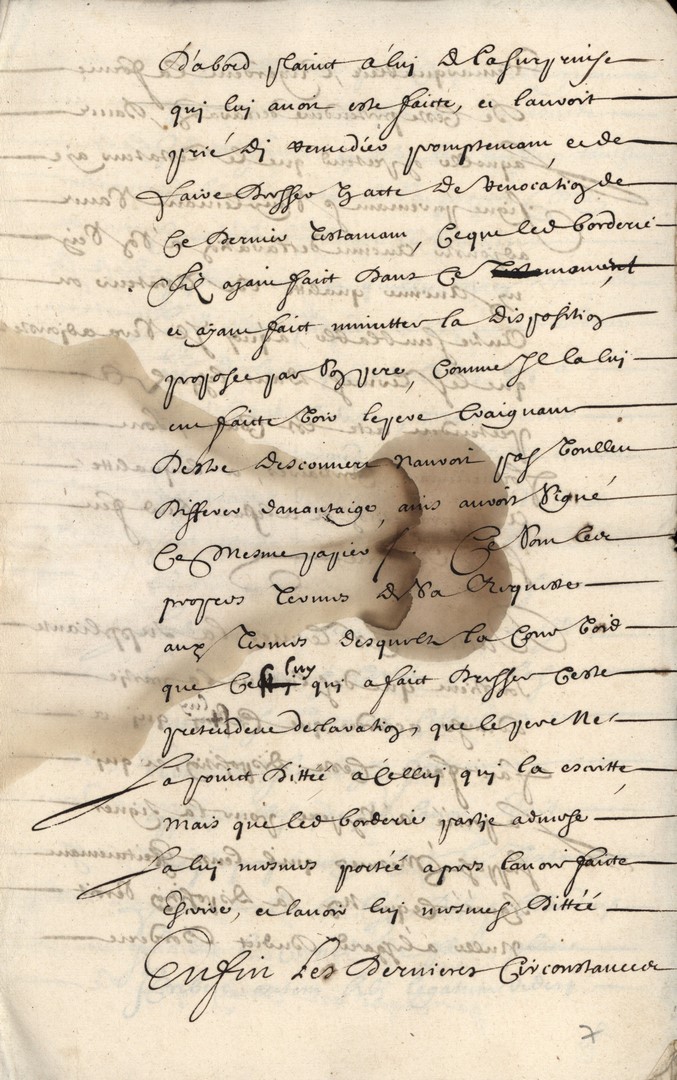 D'abord plainct a lui de la surprise
qui lui avoit este faicte, et lavoit
prié di remedier promptemant et de
faire dresser  acte de revocation de
Ce dernier testamant, Ce que led borderie
fil ayant faict dans ce
et ayant faict minutter la disposition
proposée par son pere, Comme Il la lui
eut faicte voir le pere Craignant
destre descouvert nauroit pas voulleu
differer davantaige, ains auroit signé
Ce mesme papier / Ce sont les
propres termes de sa Requeste
aux termes desquels la Cour void
que Celluy qui a faict dresser Ceste
pretendeue declaration, que le pere ne
la poinct dittée a Cellui qui la escritte
Mais que led borderie partie adverse
la lui mesmes portée apres lavoir faicte
Escrire, et lavoir lui mesmes dittée
Enfin Les dernieres Circonstances
7